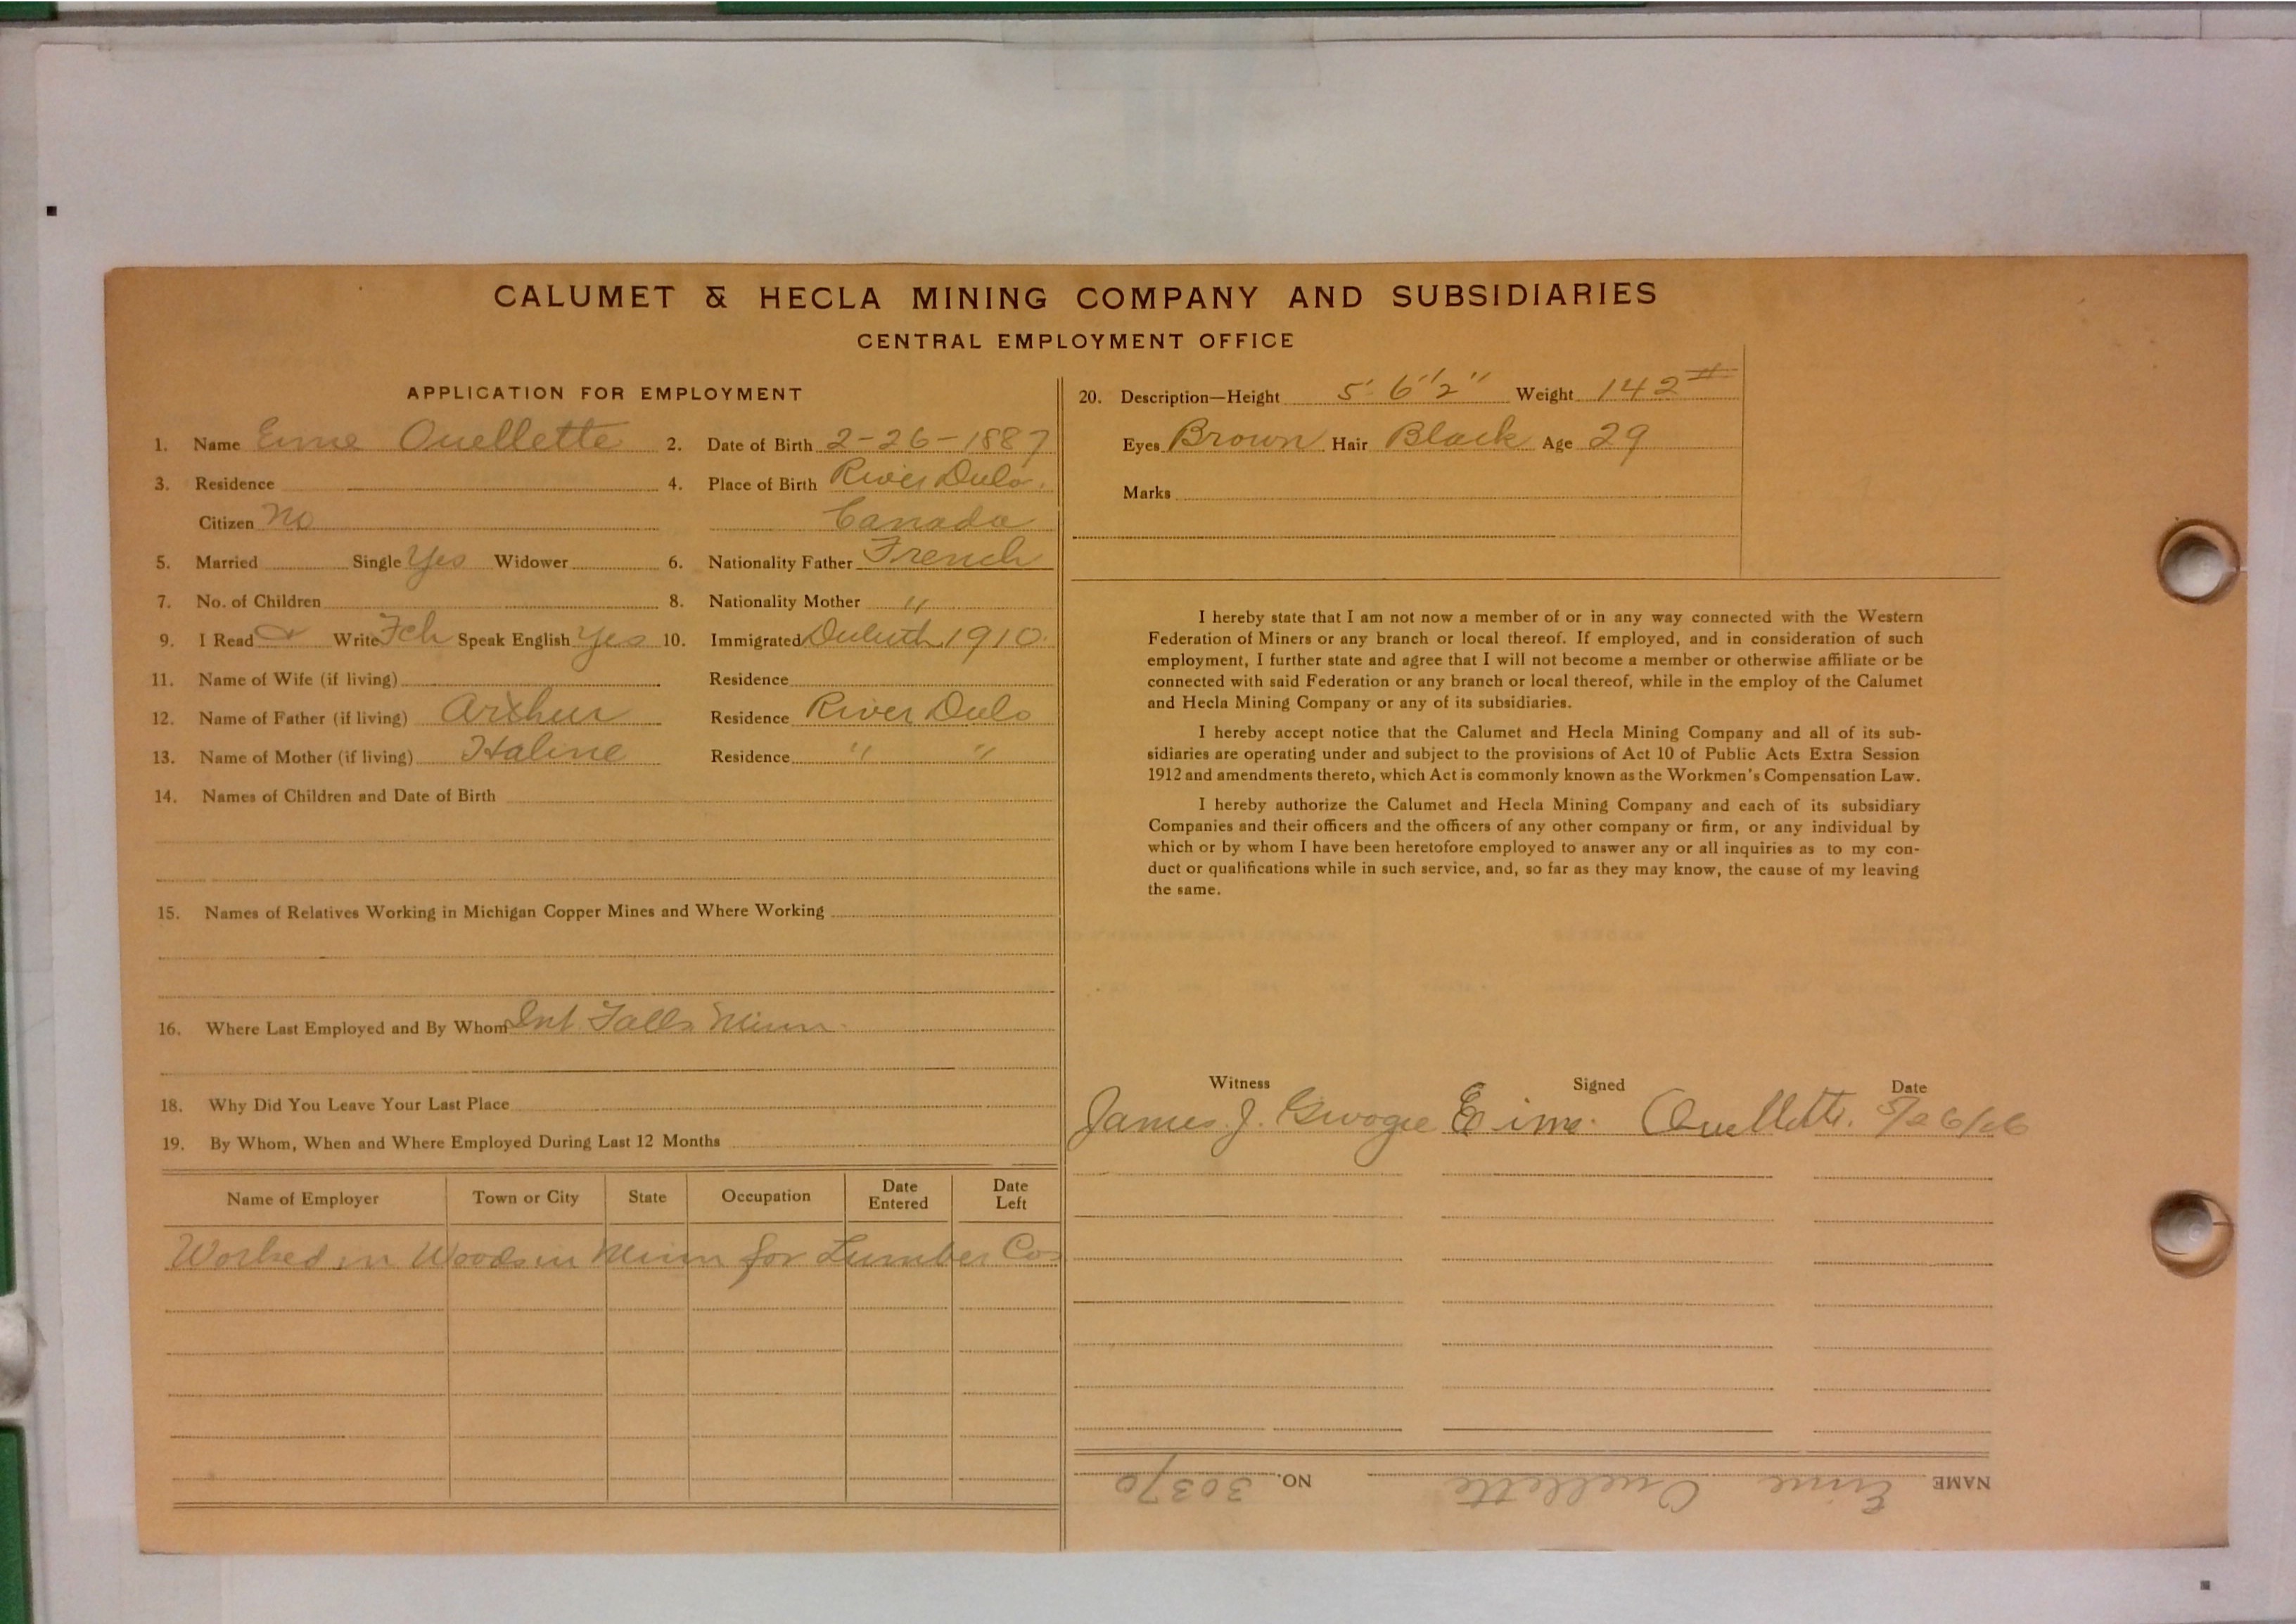 CALUMET & HECLA MINING COMPANY AND SUBSIDIARIES
CENTRAL EMPLOYMENT OFFICE
APPLICATION FOR EMPLOYMENT
1. Name Eme Ouellette 2. Date of Birth 2-26-1887
3. Residence 4. Place of Birth River Dulo.
Citizen No Canada
5. Married Single Yes Widower 6. Nationality Father French
7. No. of Children 8. Nationality Mother "
9. I Read & Write Fch Speak English Yes 10. Immigrated Duluth 1910.
11. Name of Wife (if living) Residence
12. Name of Father (if living) Arthur Residence River Dulo
13. Name of Mother (if living) Haline Residence " "
14. Names of Children and Date of Birth
15. Names of Relatives Working in Michigan Copper Mines and Where Working
16. Where Last Employed and By Whom Int Falls Minn.
18. Why Did You Leave Your Last Place
19. By Whom, When and Where Employed During Last 12 Months
Name of Employer Town or City State Occupation Date Entered Date Left
Worked in Woods in Minn for Lumber Cos
20. Description—Height 5' 6 1/2" Weight 142 #
Eyes Brown Hair Black Age 29
Marks
I hereby state that I am not now a member of or in any way connected with the Western
Federation of Miners or any branch or local thereof. If employed, and in consideration of such
employment, I further state and agree that I will not become a member or otherwise affiliate or be
connected with said Federation or any branch or local thereof, while in the employ of the Calumet
and Hecla Mining Company or any of its subsidiaries.
I hereby accept notice that the Calumet and Hecla Mining Company and all of its sub-
sidiaries are operating under and subject to the provisions of Act 10 of Public Acts Extra Session
1912 and amendments thereto, which Act is commonly known as the Workmen's Compensation Law.
I hereby authorize the Calumet and Hecla Mining Company and each of its subsidiary
Companies and their officers and the officers of any other company or firm, or any individual by
which or by whom I have been heretofore employed to answer any or all inquiries as to my con-
duct or qualifications while in such service, and, so far as they may know, the cause of my leaving
the same.
Witness Signed Date
James J. Ouellette.
NAME Eme Ouellette NO. 30370